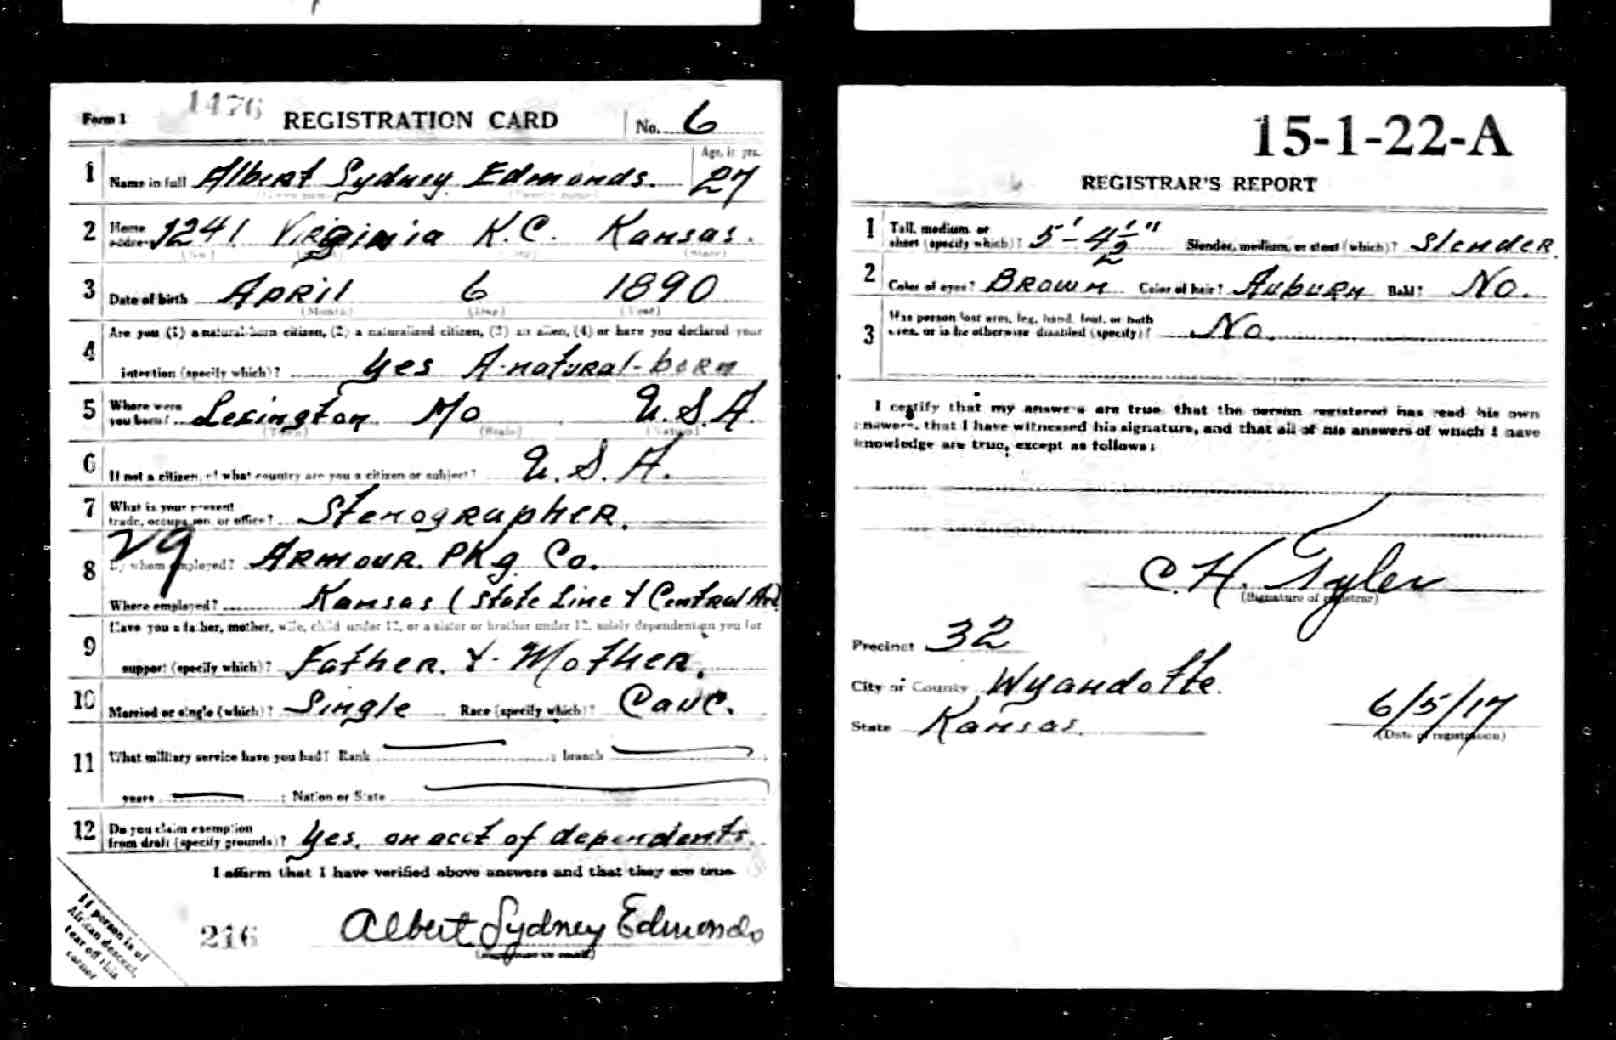 Form 1 1476 REGISTRATION CARD No. 6
1 Name in full Albert Sydney Edmonds. Age, in yrs. 27
2 Home address 1241 Virginia K.C. Kansas.
(No.) (State)
3 Date of birth April 6 1890
(Month) (Day) (Year)
4 Are you (1) a natural-born citizen, (2) a naturalized citizen, (3) an alien, (4) or have you declared your
intention (specify which)? Yes A-natural-born
5 Where were you born? Lexington Mo U.S.A.
(Town) (State) (Nation)
6 If not a citizen, of what country are you a citizen or subject? U.S.A.
7 What is your present
trade, occupation, or office? Stenographer.
29
8 By whom employed? Armour. Pkg Co.
Where employed? Kansas (State Line & Central Ave
9 Have you a father, mother, wife, child under 12, or a sister or brother under 12, solely dependent on you for
support (specify which)? Father. & Mother.
10 Married or single (which)? Single Race (specify which)? Cauc.
11 What military service have you had? Rank ; branch
years ; Nation or State
12 Do you claim exemption
from draft (specify grounds)? Yes, on acct of dependents.
I affirm that I have verified above answers and that they are true.
216 Albert Sydney Edmonds
If person is of
African descent,
tear off this
corner
15-1-22-A
REGISTRAR'S REPORT
1 Tall, medium, or
short (specify which)? 5'-4½" Slender, medium, or stout (which)? Slender.
2 Color of eyes? Brown Color of hair? Auburn Bald? No.
3 Has person lost arm, leg, hand, foot, or both
eyes, or is he otherwise disabled (specify)? No.
I certify that my answers are true, that the person registered has read his own
answers, that I have witnessed his signature, and that all of his answers of which I have
knowledge are true, except as follows:
C.H. Tyler
(Signature of registrar)
Precinct 32
City or County Wyandotte.
State Kansas. 6/5/17
(Date of registration)